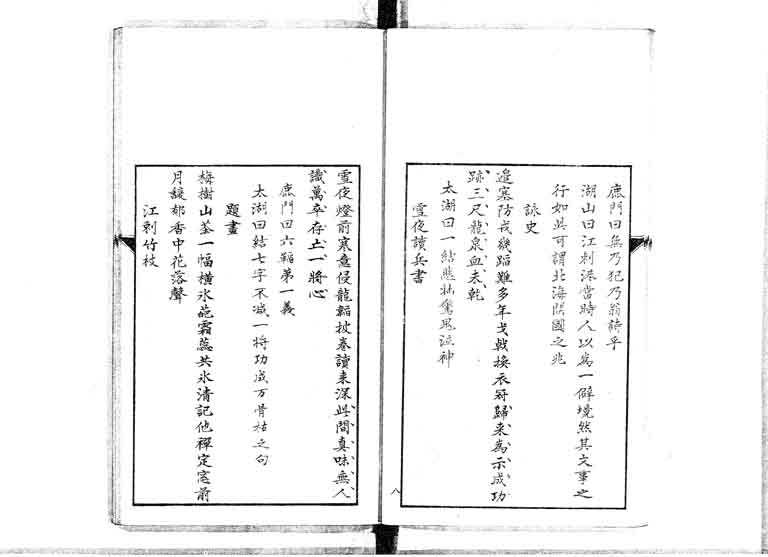 鹿門曰無乃犯乃翁諱乎
湖山曰江刺泄當時人以為一僻境然其文事之
行如此可謂北海開國之兆
詠史
邊塞防戎幾蹈難多年戈戟換衣冠歸来為示成功
跡三尺龍泉血未乾
太湖曰一結悲壮驚鬼泣神
雪夜讀兵書
八
雪夜燈前寒意侵龍韜披巻讀来深此間真味無人
識萬卒存亡一將心
鹿門曰六韜第一義
太湖曰結七字不减一将功成万骨枯之句
題畫
梅樹山茶一幅橫氷葩霜蕊共氷清記他禪定窓前
月馥郁香中花落聲
江刺竹枝